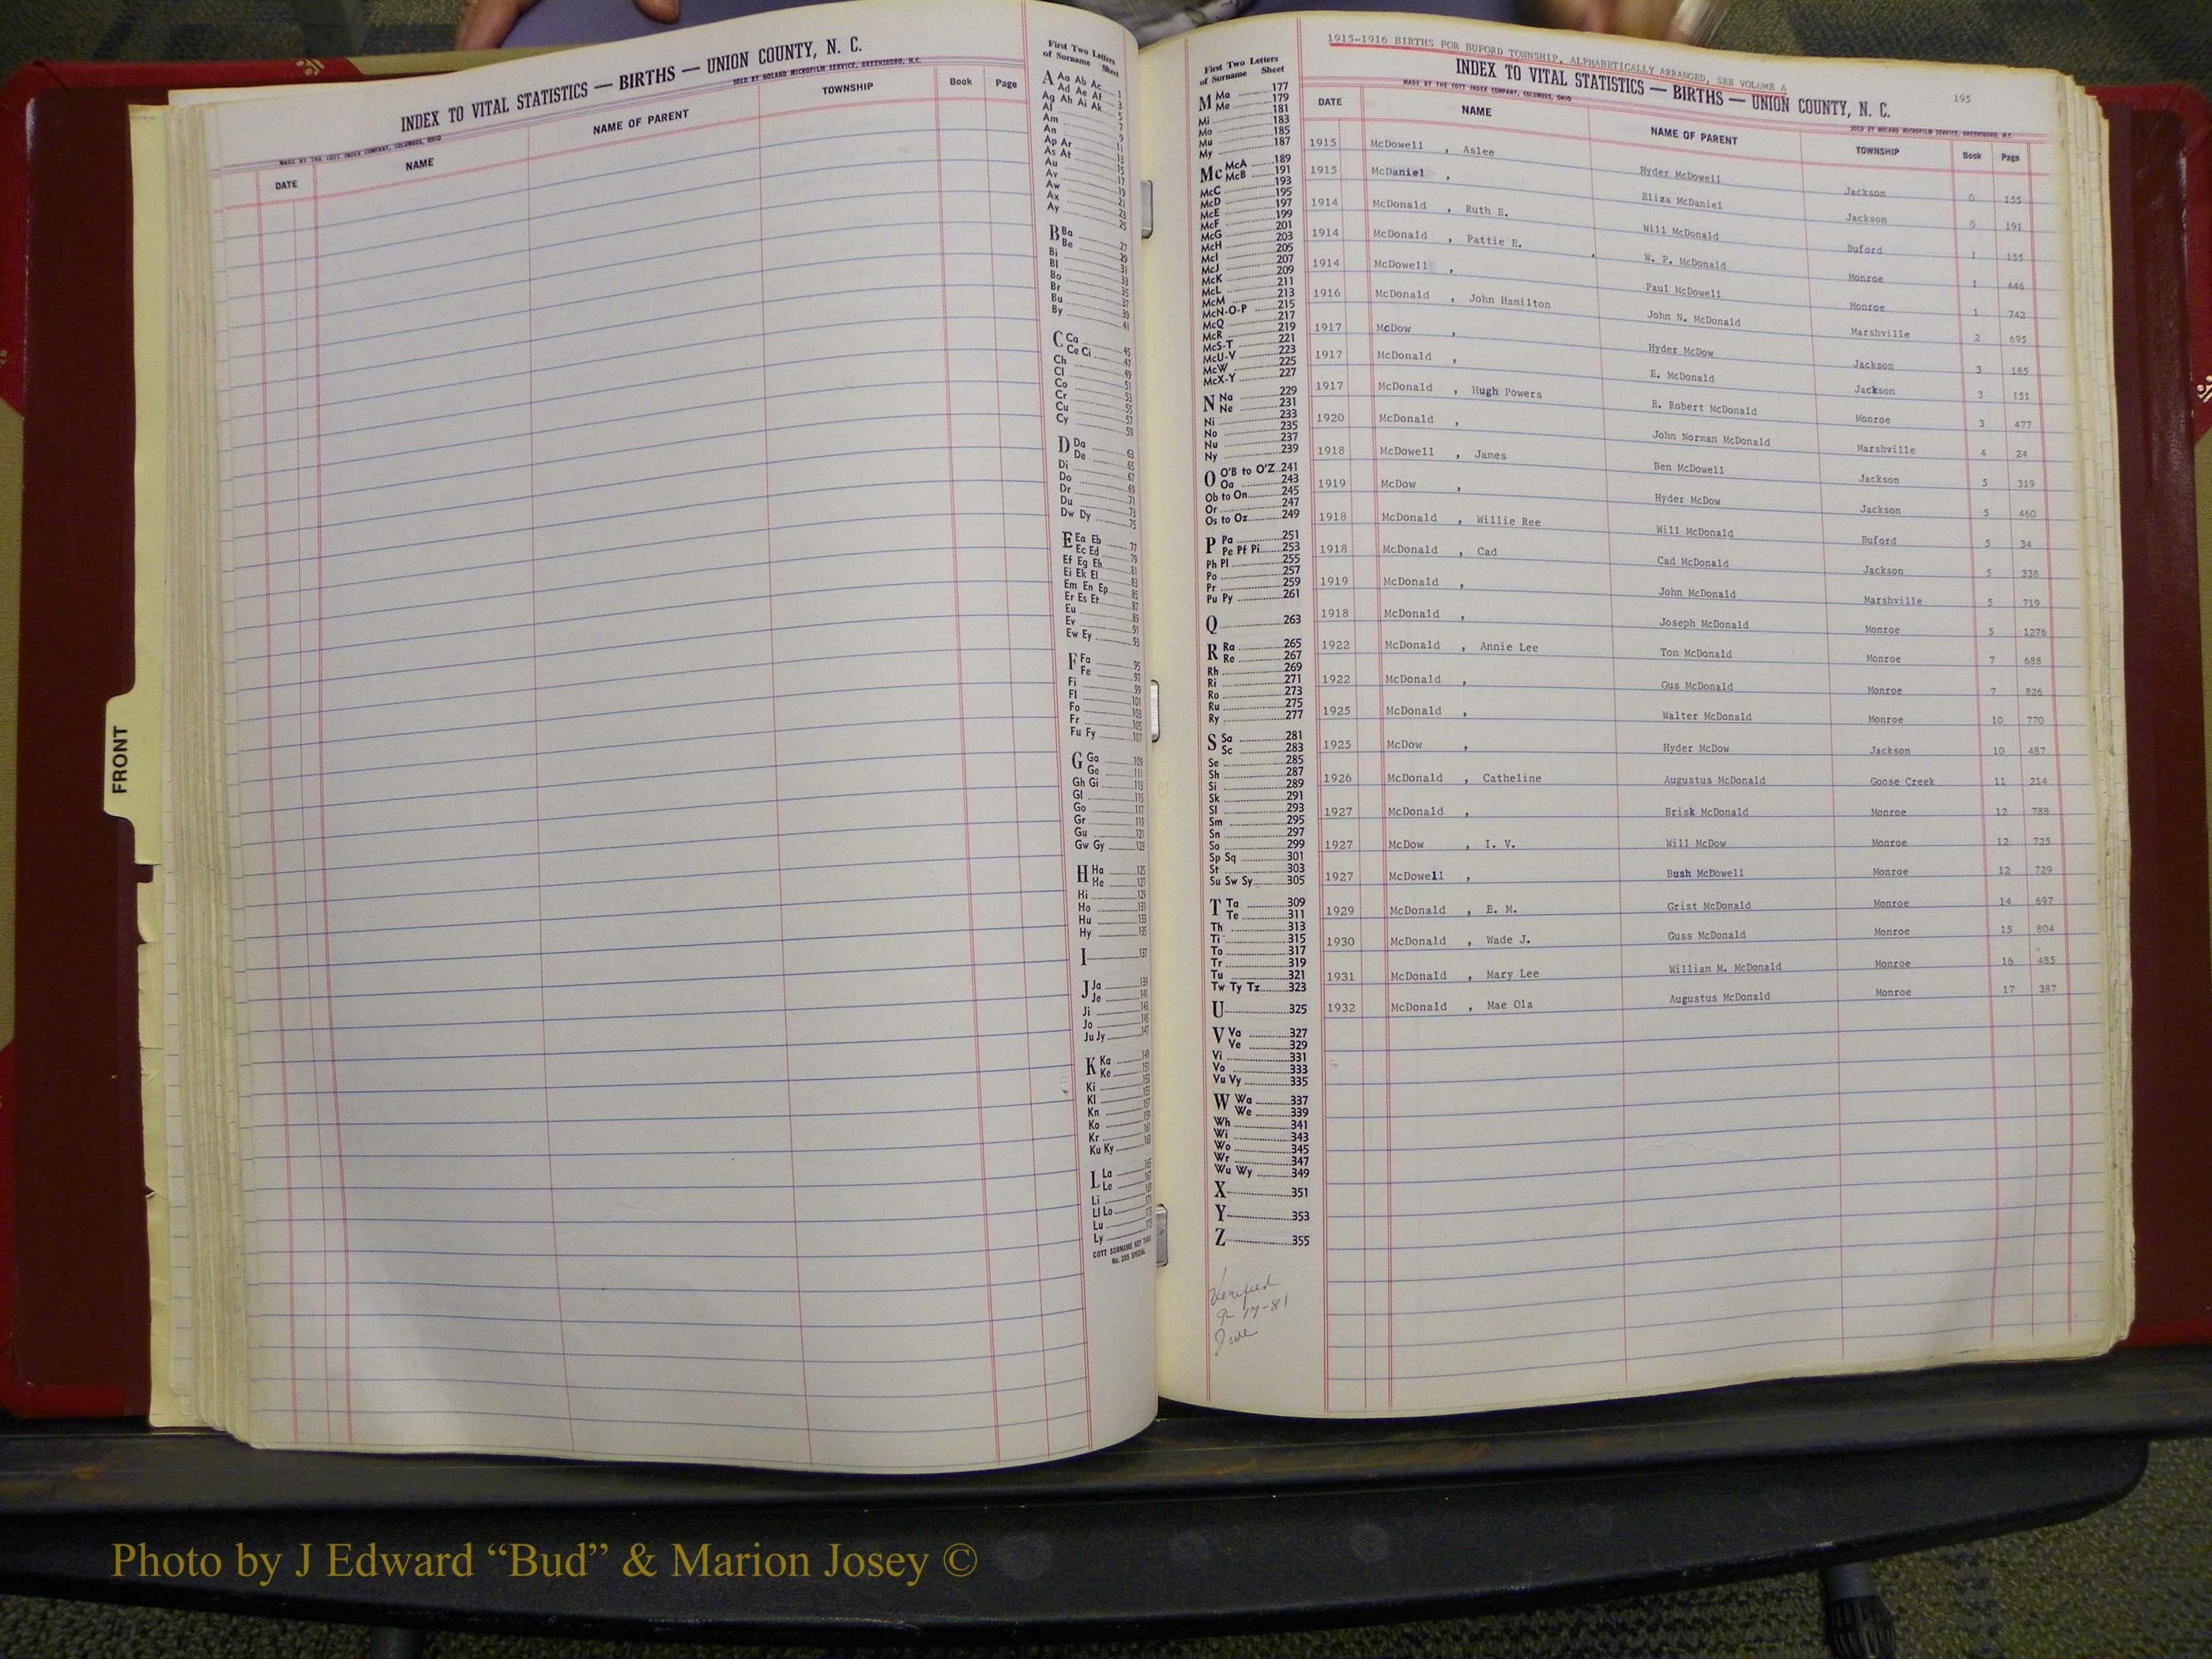 INDEX TO VITAL STATISTICS — BIRTHS — UNION COUNTY, N. C.
MADE BY THE COTT INDEX COMPANY, COLUMBUS, OHIO SOLD BY NOLAND MICROFILM SERVICE, GREENSBORO, N.C.
DATE NAME NAME OF PARENT TOWNSHIP Book Page
First Two Letters
of Surname Sheet
A Aa Ab Ac 1
Ad Ae Af 3
Ag Ah Ai Ak 5
Al 7
Am 9
An 11
Ap Ar 13
As At 15
Au 17
Av 19
Aw 21
Ax 23
Ay 25
B Ba 27
Be 29
Bi 31
Bl 33
Bo 35
Br 37
Bu 39
By 41
C Ca 45
Ce Ci 47
Ch 49
Cl 51
Co 53
Cr 55
Cu 57
Cy 59
D Da 63
De 65
Di 67
Do 69
Dr 71
Du 73
Dw Dy 75
E Ea Eb 77
Ec Ed 79
Ef Eg Eh 81
Ei Ek El 83
Em En Ep 85
Er Es Et 87
Eu 89
Ev 91
Ew Ey 93
F Fa 95
Fe 97
Fi 99
Fl 101
Fo 103
Fr 105
Fu Fy 107
G Ga 109
Ge 111
Gh Gi 113
Gl 115
Go 117
Gr 119
Gu 121
Gw Gy 123
H Ha 125
He 127
Hi 129
Ho 131
Hu 133
Hy 135
I 137
J Ja 139
Je 141
Ji 143
Jo 145
Ju Jy 147
K Ka 149
Ke 151
Ki
Kl
Kn
Ko
Kr
Ku Ky
L La
Le
Li
Ll Lo
Lu
Ly
COTT SURNAME KEY TABLE
No. 355 SPECIAL
FRONT
1915-1916 BIRTHS FOR BUFORD TOWNSHIP, ALPHABETICALLY ARRANGED, SEE VOLUME A
INDEX TO VITAL STATISTICS — BIRTHS — UNION COUNTY, N. C. 195
MADE BY THE COTT INDEX COMPANY, COLUMBUS, OHIO SOLD BY NOLAND MICROFILM SERVICE, GREENSBORO, N.C.
First Two Letters
of Surname Sheet
M Ma 177
Me 179
Mi 181
Mo 183
Mu 185
My 187
Mc McA 189
McB 191
McC 193
McD 195
McE 197
McF 199
McG 201
McH 203
McI 205
McJ 207
McK 209
McL 211
McM 213
McN-O-P 215
McQ 217
McR 219
McS-T 221
McU-V 223
McW 225
McX-Y 227
N Na 229
Ne 231
Ni 233
No 235
Nu 237
Ny 239
O O'B to O'Z 241
Oa 243
Ob to On 245
Or 247
Os to Oz 249
P Pa 251
Pe Pf Pi 253
Ph Pl 255
Po 257
Pr 259
Pu Py 261
Q 263
R Ra 265
Re 267
Rh 269
Ri 271
Ro 273
Ru 275
Ry 277
S Sa 281
Sc 283
Se 285
Sh 287
Si 289
Sk 291
Sl 293
Sm 295
Sn 297
So 299
Sp Sq 301
St 303
Su Sw Sy 305
T Ta 309
Te 311
Th 313
Ti 315
To 317
Tr 319
Tu 321
Tw Ty Tz 323
U 325
V Va 327
Ve 329
Vi 331
Vo 333
Vu Vy 335
W Wa 337
We 339
Wh 341
Wi 343
Wo 345
Wr 347
Wu Wy 349
X 351
Y 353
Z 355
Verified
9-17-81
DATE NAME NAME OF PARENT TOWNSHIP Book Page
1915 McDowell , Aslee Hyder McDowell Jackson 0 155
1915 McDaniel , Eliza McDaniel Jackson 0 191
1914 McDonald , Ruth E. Will McDonald Buford 1 155
1914 McDonald , Pattie E. W. P. McDonald Monroe 1 446
1914 McDowell , Paul McDowell Monroe 1 742
1916 McDonald , John Hamilton John N. McDonald Marshville 2 695
1917 McDow , Hyder McDow Jackson 3 185
1917 McDonald , E. McDonald Jackson 3 151
1917 McDonald , Hugh Powers E. Robert McDonald Monroe 3 477
1920 McDonald , John Norman McDonald Marshville 4 24
1918 McDowell , James Ben McDowell Jackson 5 319
1919 McDow , Hyder McDow Jackson 5 460
1918 McDonald , Willie Ree Will McDonald Buford 5 34
1918 McDonald , Cad Cad McDonald Jackson 5 338
1919 McDonald , John McDonald Marshville 5 719
1918 McDonald , Joseph McDonald Monroe 5 1276
1922 McDonald , Annie Lee Tom McDonald Monroe 7 688
1922 McDonald , Gus McDonald Monroe 7 826
1925 McDonald , Walter McDonald Monroe 10 770
1925 McDow , Hyder McDow Jackson 10 487
1926 McDonald , Catheline Augustus McDonald Goose Creek 11 214
1927 McDonald , Brisk McDonald Monroe 12 788
1927 McDow , I. V. Will McDow Monroe 12 725
1927 McDowell , Bush McDowell Monroe 12 729
1929 McDonald , E. M. Grist McDonald Monroe 14 697
1930 McDonald , Wade J. Guss McDonald Monroe 15 804
1931 McDonald , Mary Lee William M. McDonald Monroe 16 485
1932 McDonald , Mae Ola Augustus McDonald Monroe 17 387
Photo by J Edward “Bud” & Marion Josey ©